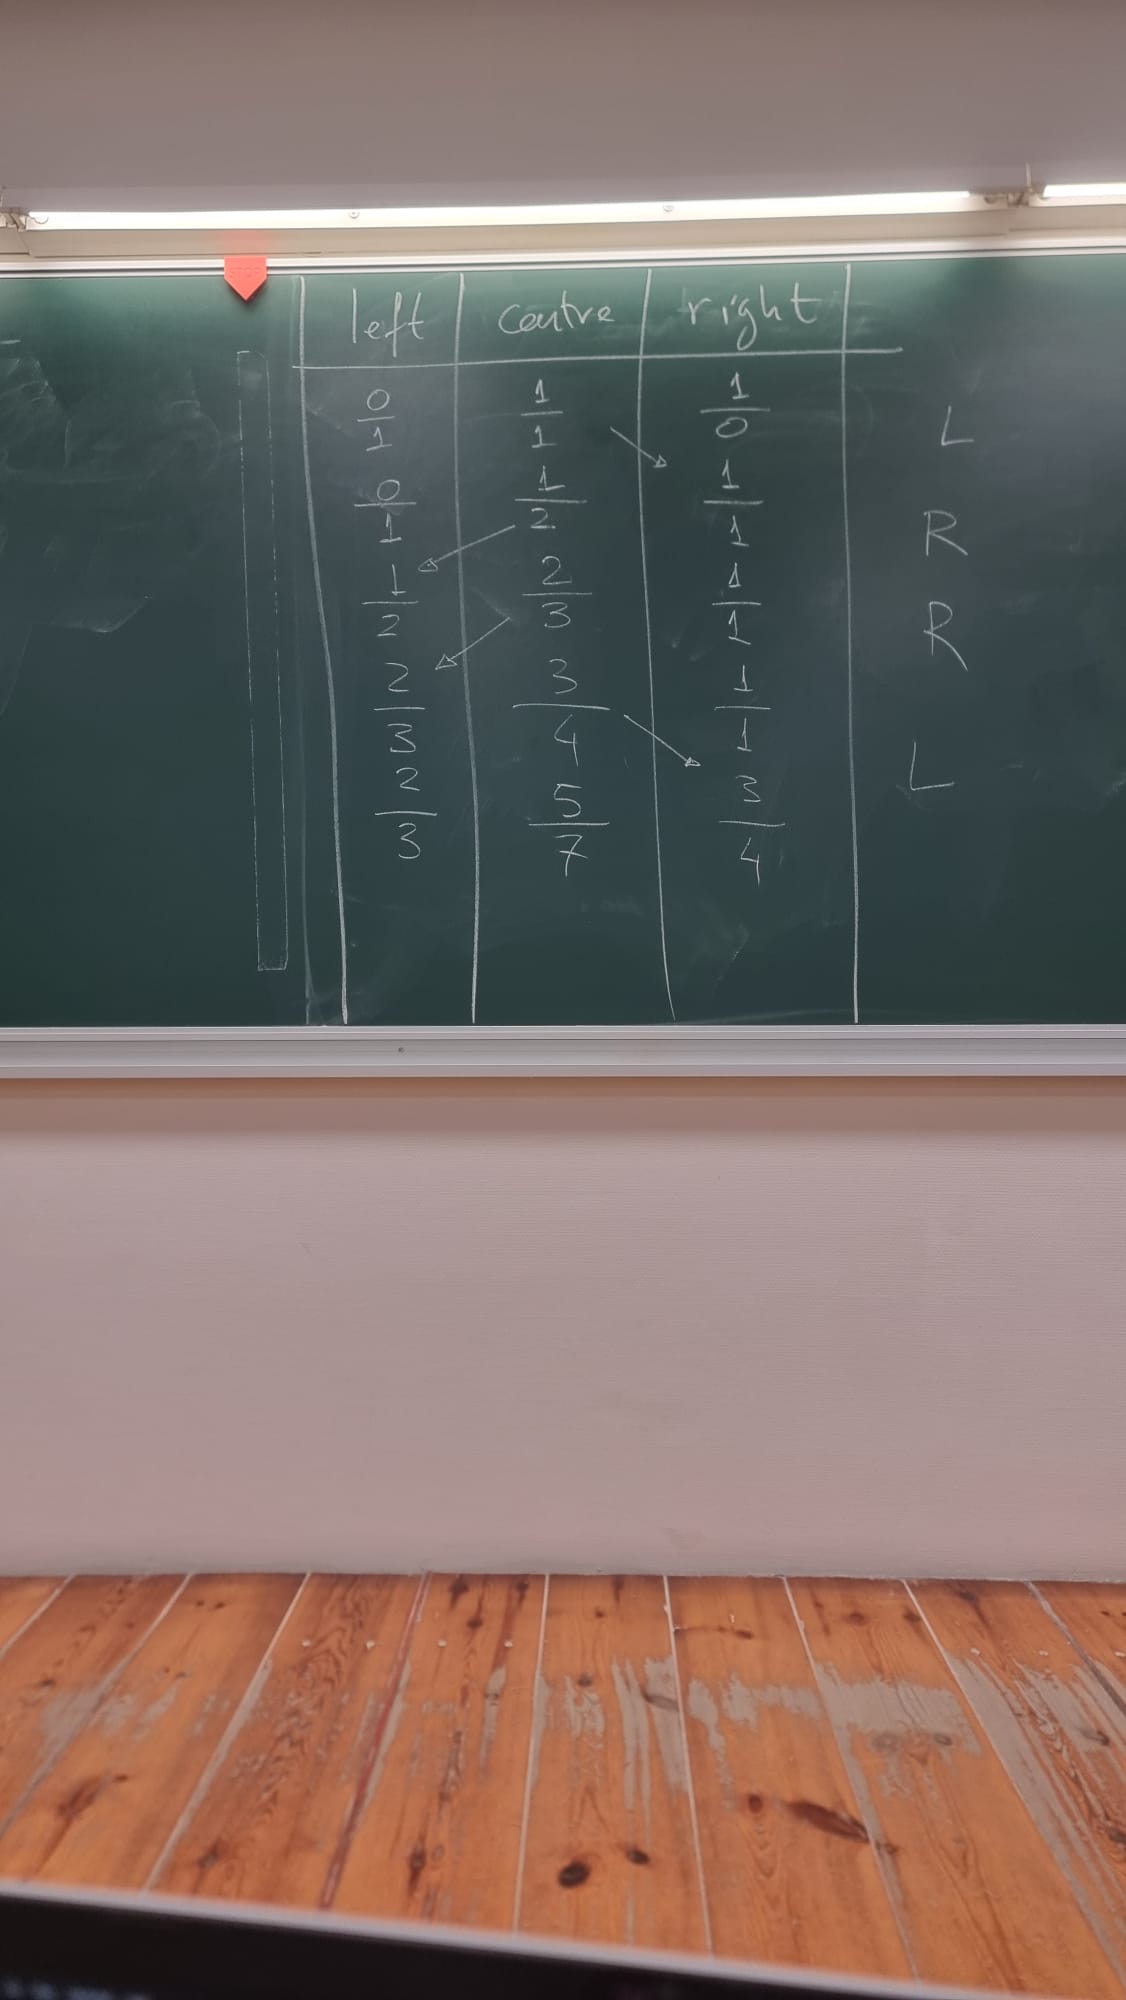 STOP
left centre right
0/1 1/1 1/0 L
0/1 1/2 1/1 R
1/2 2/3 1/1 R
2/3 3/4 1/1 L
2/3 5/7 3/4